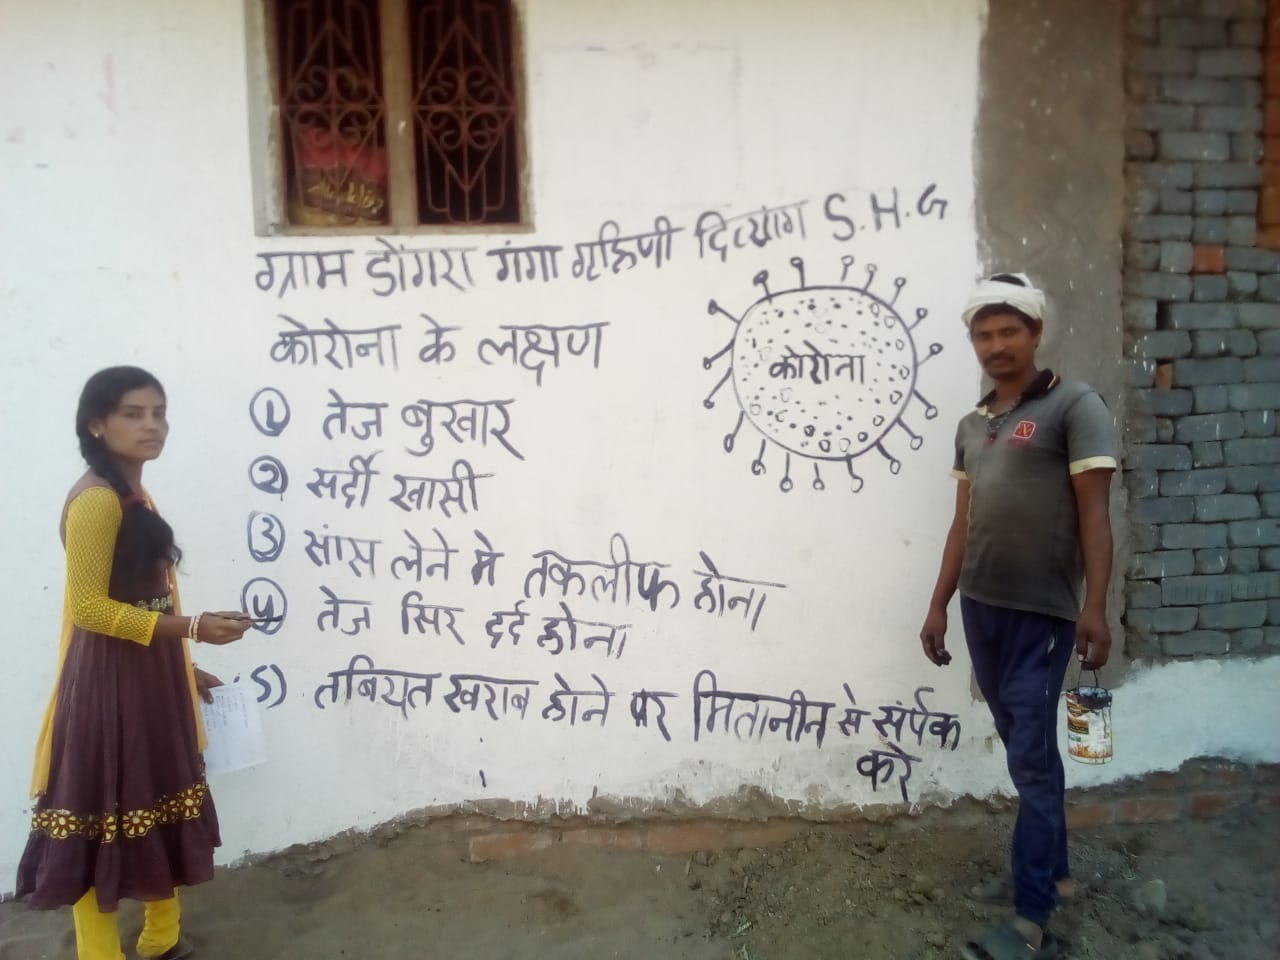 ग्राम डोंगरा गंगा गृहिणी दिव्यांग S.H.G
कोरोना के लक्षण
कोरोना
① तेज बुखार
② सर्दी खासी
③ सांस लेने मे तकलीफ होना
④ तेज सिर दर्द होना
5) तबियत खराब होने पर मितानीन से संर्पक
करे